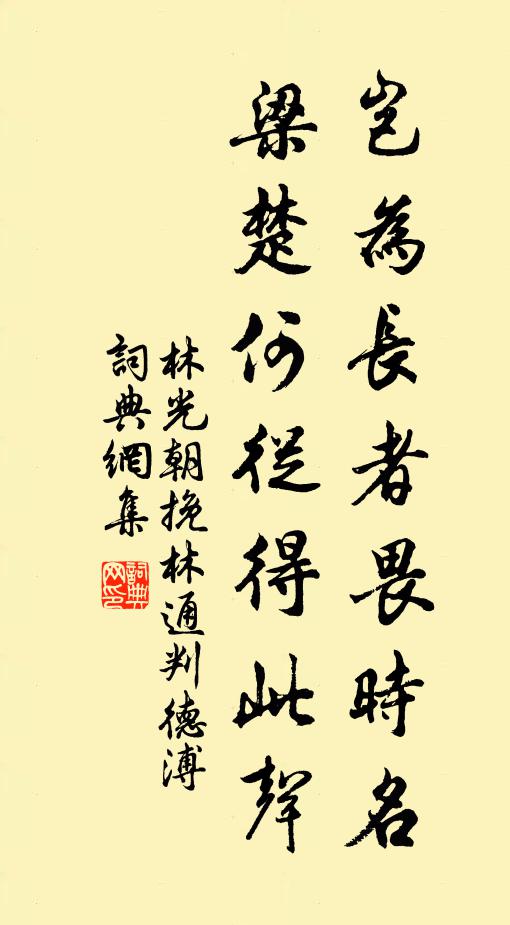 豈為長者畏時名
梁楚何從得此聲
林光朝挽林通判德溥
詞典網集
詞典网印